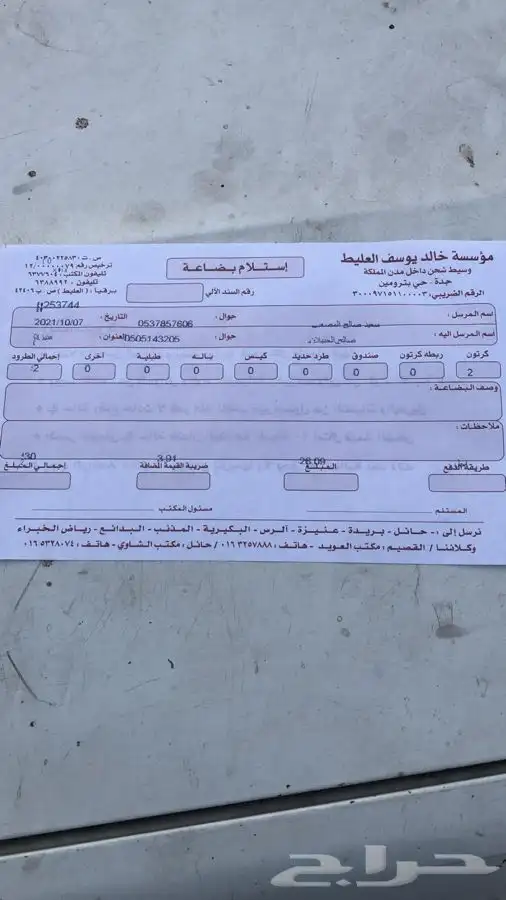 مؤسسة خالد يوسف العليط
وسيط شحن داخل مدن المملكة
جدة - حي بترومين
الرقم الضريبي: ٣٠٠٠٩٧١٥١١٠٠٠٠٣
إستلام بضاعة
رقم السند الآلي
تليفون المكتب: ٦٣٧٧٦٠٤
تليفون: ٦٣٨٨٩٩٢
برقيا: (العليط) ص. ب ٤٢٤٠٦
253744
اسم المرسل: سعيد صالح جوال: 0537857606 التاريخ: 2021/10/07
اسم المرسل اليه: صالح جوال: 0505143205 العنوان:
كرتون ربطه كرتون صندوق طرد حديد كيس بالـه طبلية أخرى إجمالي الطرود
2 0 0 0 0 0 0 0 2
وصف البضاعة:
ملاحظات:
طريقة الدفع المبلغ ضريبة القيمة المضافة إجمالي المبلغ
26.09 3.91 30
المستلم مسئول المكتب
نرسل إلى: - حائل - بريدة - عنيزة - الرس - البكيرية - المذنب - البدائع - رياض الخبراء
وكلائنا / القصيم: مكتب العويد - هاتف: ٠١٦٣٢٥٧٨٨٨ / حائل: مكتب الشاوي - هاتف: ٠١٦٥٣٢٨٠٧٤
حراج